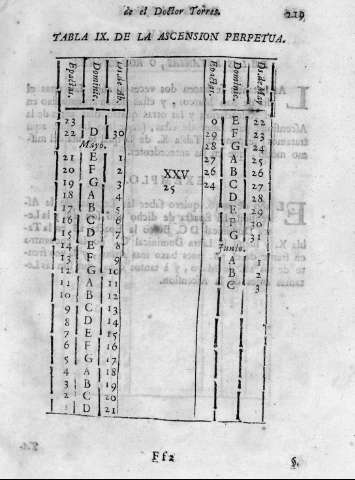 de el Doctor Torres. 219
TABLA IX. DE LA ASCENSION PERPETUA.
Epactas. Dominic. Epactas. Dominic. Ds. de May
23
22 D 30
Mayo.
21 E 1
20 F 2
19 G 3
18 A 4
17 B 5
16 C 6
15 D 7
14 E 8
13 F 9
12 G 10
11 A 11
10 B 12
9 C 13
8 D 14
7 E 15
6 F 16
5 G 17
4 A 18
3 B 19
2 C 20
1 D 21
XXV
25
0 E 22
29 F 23
28 G 24
27 A 25
26 B 26
24 C 27
D 28
E 29
F 30
G 31
Junio.
A 1
B 2
C 3
Ff2 §.